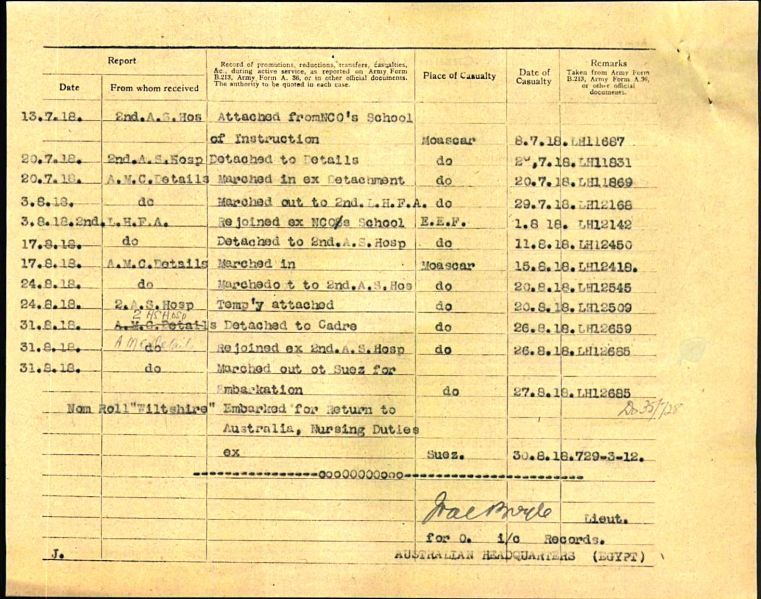 Report
Date
From whom received
Record of promotions, reductions, transfers, casualties,
&c., during active service, as reported on Army Form
B.213, Army Form A. 36, or in other official documents.
The authority to be quoted in each case.
Place of Casualty
Date of
Casualty
Remarks
Taken from Army Form
B.213, Army Form A.36,
or other official
documents.
13.7.18. 2nd.A.S.Hos Attached fromNCO's School
of Instruction Moascar 8.7.18.LH11687
20.7.18. 2nd.A.S.Hosp Detached to Details do ,7.18.LH11831
20.7.18. A.M.C.Details Marched in ex Detachment do 20.7.18.LH11869
3.8.18. do Marched out to 2nd.L.H.F.A. do 29.7.18.LH12168
3.8.18.2nd.L.H.F.A. Rejoined ex NCO's School E.E.F. 1.8 18. LH12142
17.8.18. do Detached to 2nd.A.S.Hosp do 11.8.18.LH12450
17.8.18. A.M.C.Details Marched in Moascar 15.8.18.LH12418.
24.8.18. do Marchedo t to 2nd.A.S.Hos do 20.8.18.LH12545
24.8.18. 2.A.S.Hosp Temp'y attached do 20.8.18.LH12509
31.8.18. A.M.C.Details Detached to Cadre do 26.8.18.LH12659
31.8.18. do Rejoined ex 2nd.A.S.Hosp do 26.8.18.LH12685
31.8.18. do Marched out ot Suez for
Embarkation do 27.8.18.LH12685
Nom Roll"Wiltshire" Embarked for Return to
Australia, Nursing Duties
ex Suez. 30.8.18.729-3-12.
Lieut.
for O. i/c Records.
J. AUSTRALIAN HEADQUARTERS (EGYPT)